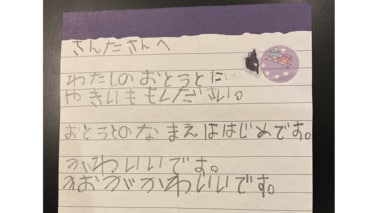 さんたさんへ
わたしのおとうとに
やきいもください。
おとうとのなまえははじめです。
かわいいです。
かおがかわいいです。